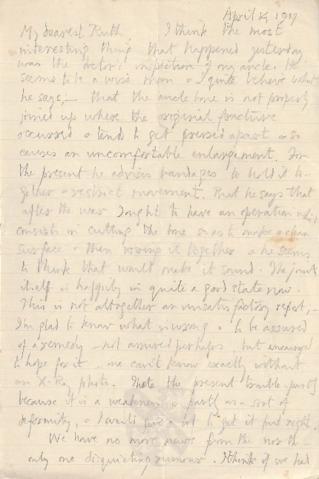 April 14, 1917
My dearest Ruth I think the most
interesting thing that happened yesterday
was the doctor's inspection of my ankle. He
seems to be a wise man & I quite believe what
he says; – that the ankle bone is not properly
joined up where the original fracture
occurred & tends to get pressed apart & so
causes an uncomfortable enlargement. For
the present he advises bandages to hold it to-
gether & restrict movement. But he says that
after the war I ought to have an operation which
consists in cutting the bone so as to make a clean
surface & then together & he seems
to think that would make it sound. The joint
itself is happily in quite a good state now.
This is not altogether an unsatisfactory report, –
I'm glad to know what is wrong & to be assured
of a remedy – not assured perhaps but encouraged
to hope for it – one can't know exactly without
an X-Ray photo. I hate the present trouble partly
because it is a weakness & partly as a sort of
deformity, & I would to get it put right.
We have no more news from the north
only one disquieting rumour. I think if we had